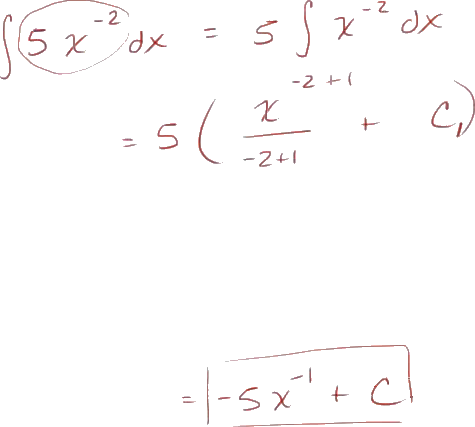 ∫ 5 x⁻² dx = 5 ∫ x⁻² dx
= 5 ( x⁻²⁺¹ / -2+1 + C₁)
= -5x⁻¹ + C